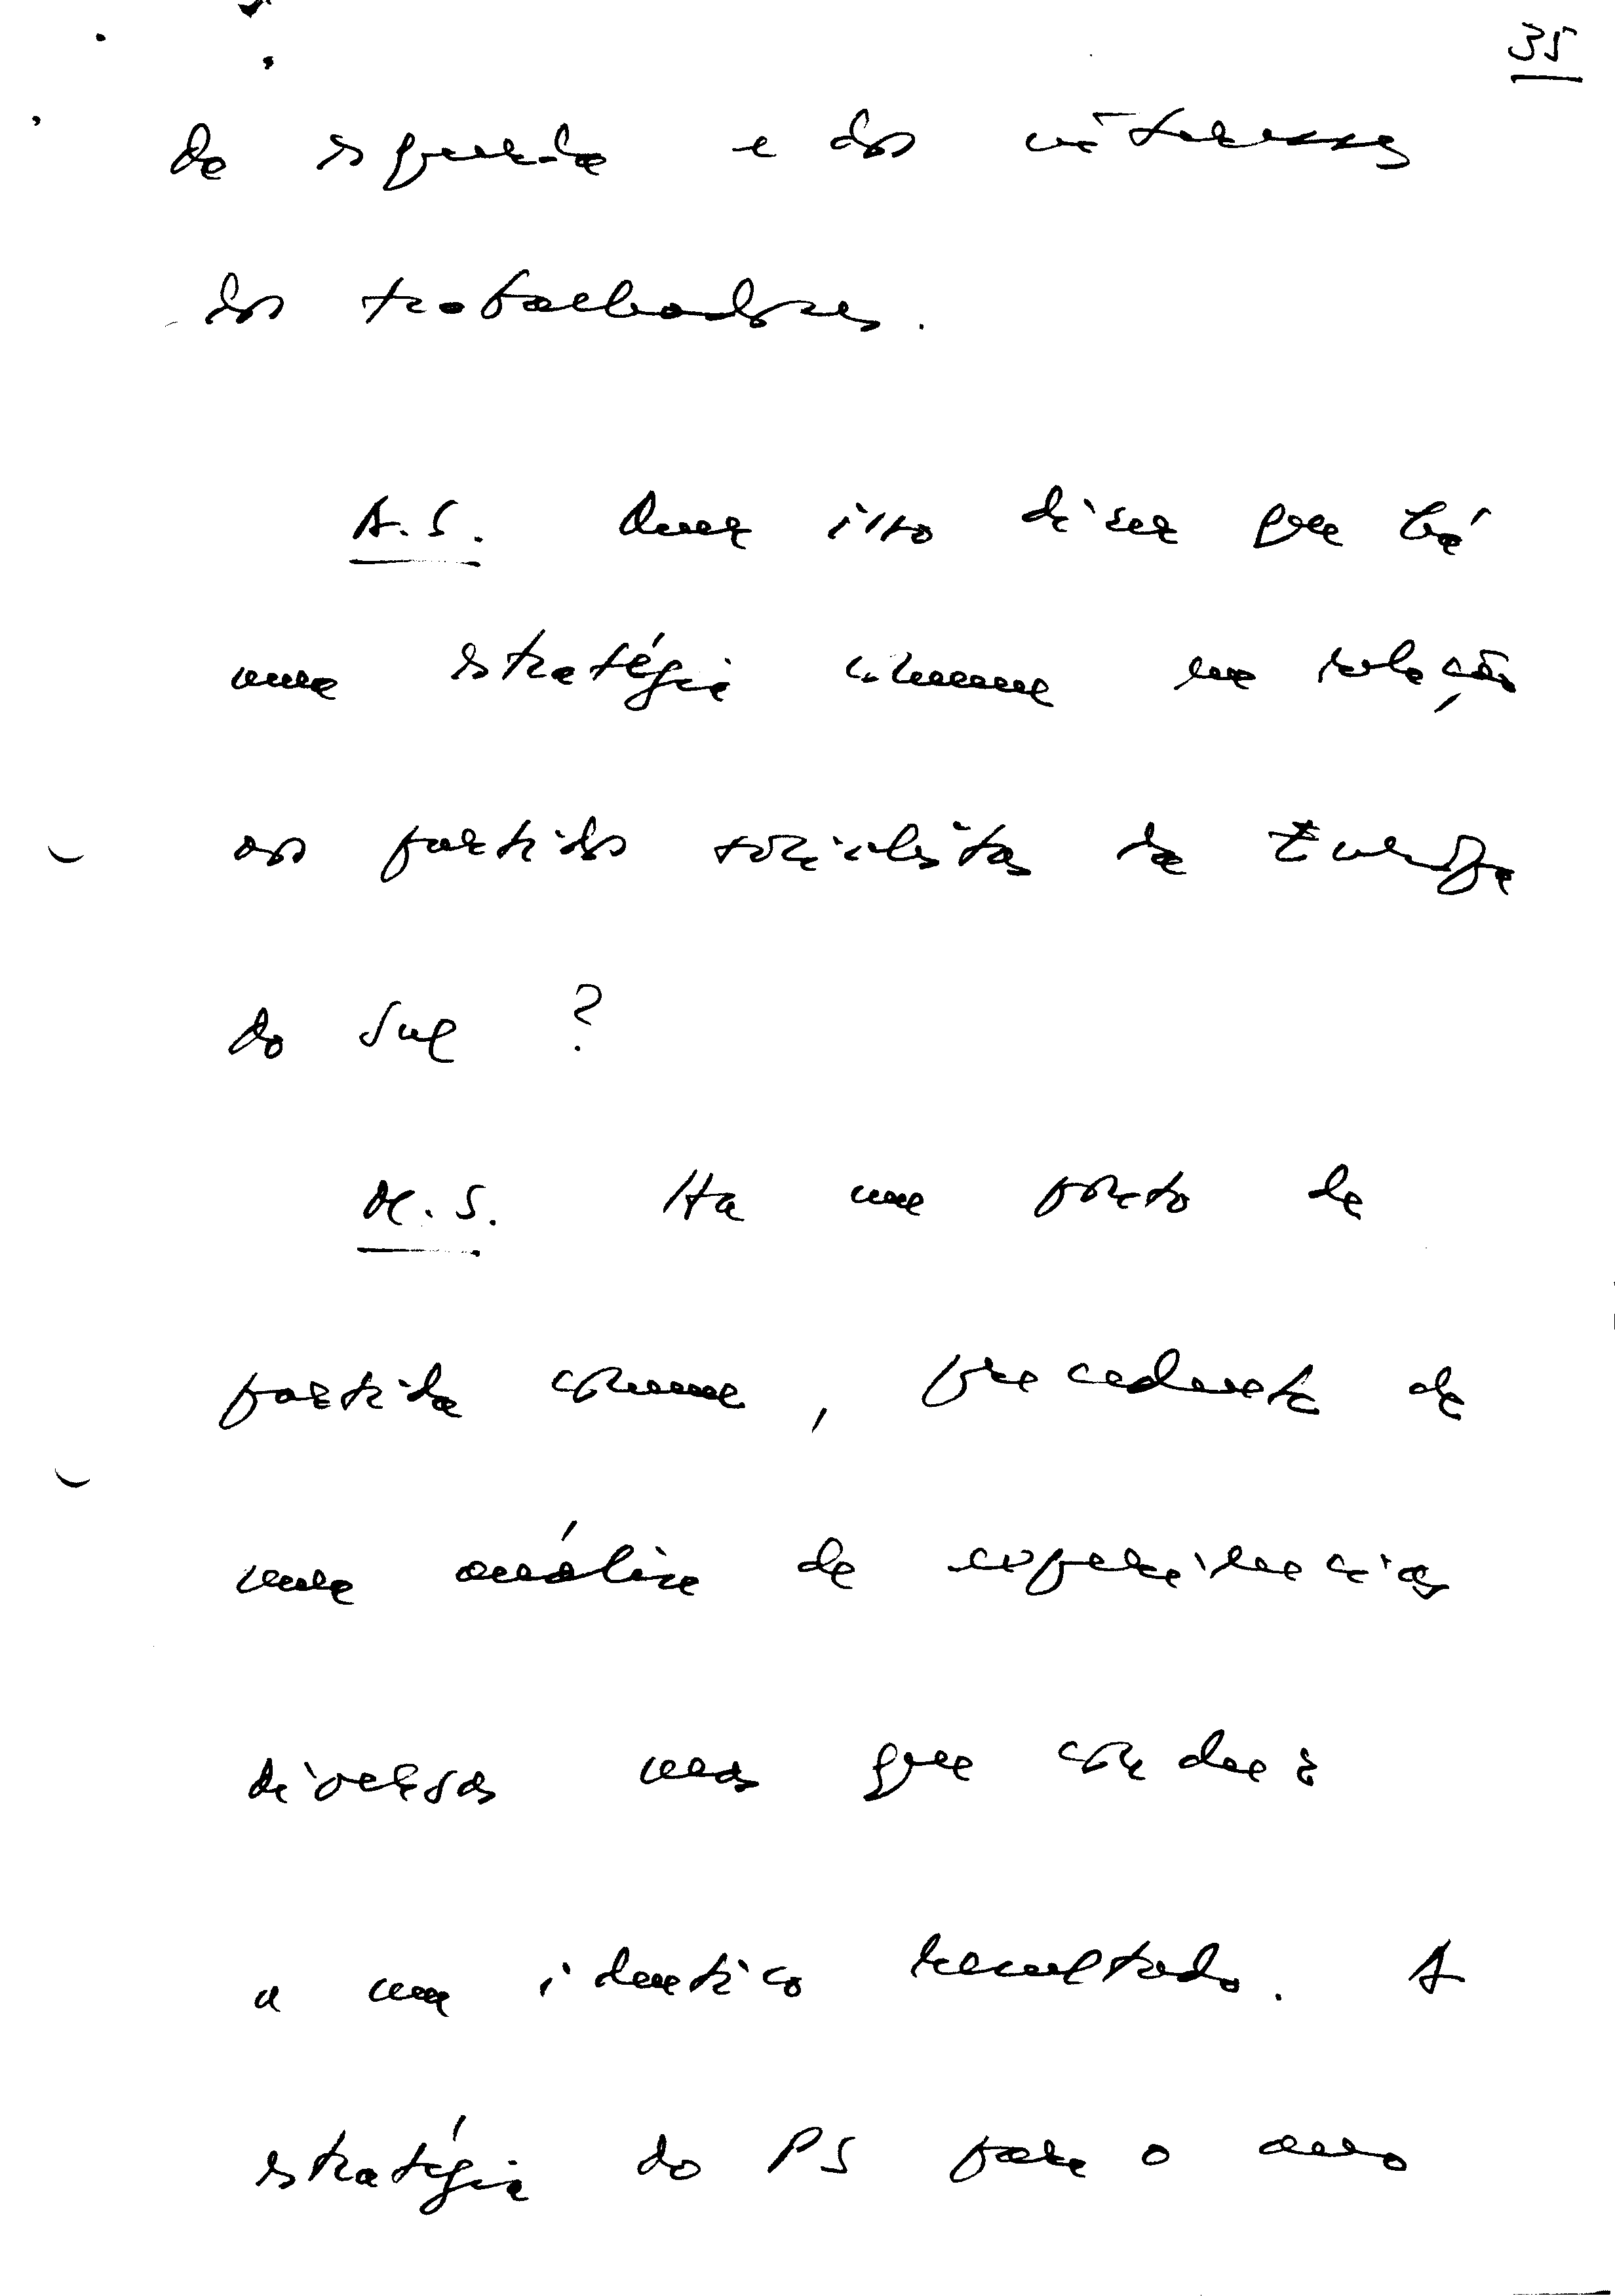 35
da esquerda e dos interesses
dos trabalhadores.
A.S. Quer isso dizer que há
uma estratégia comum em relação
aos partidos socialistas da Europa
do Sul ?
M.S. Ha um ponto de
partida comum, procedente de
uma análise de experiências
diversas mas que conduz
a um identico resultado. A
estratégia do PS para o ano